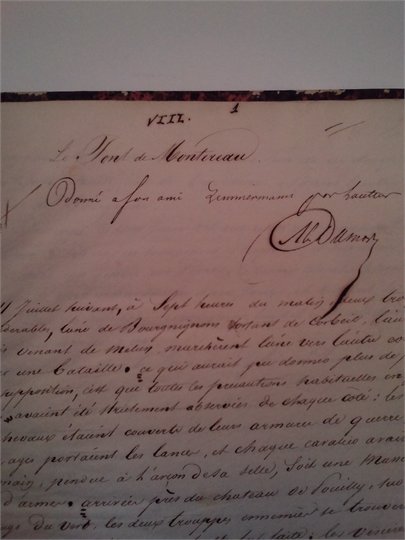 VIII. 1
Le Pont de Montereau.
Donné a son ami Zimmermann par l'auteur
Al Dumas
Juillet suivant, à Sept heures du matin, deux tro
dérables, l'une de Bourguignons sortant de Corbeil, l'au
venant de Melun, marchèrent l'une vers l'autre co
une Bataille. ce qui aurait pu donner plus de
supposition, c'est que toutes les précautions habituelles en
avaient été strictement observées de chaque coté: les
hevaux étaient couverts de leurs armures de guerre
ages portaient les lances, et chaque cavalier avait
main, pendue à l'arçon de sa selle, soit une Mass
d'armes. arrivées près du chateau de Pouilly, su
du Vert, les deux trouppes ennemies se trouvèr
halte: les visières